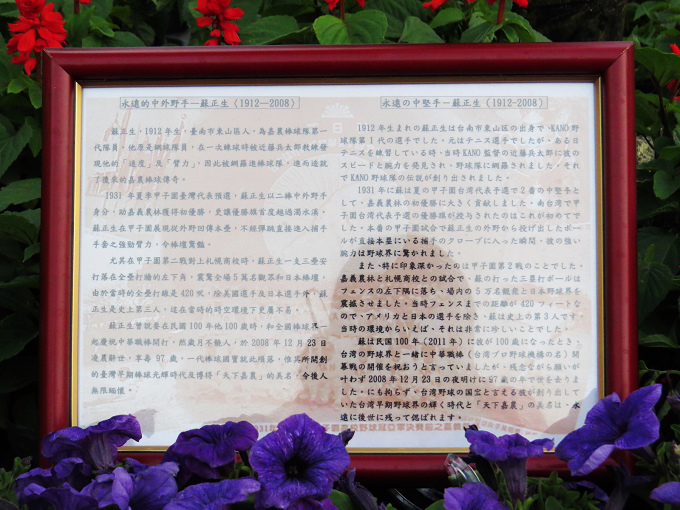 永遠的中外野手—蘇正生〈1912—2008〉
蘇正生，1912 年生，臺南市東山區人，為嘉農棒球隊第一
代隊員。他原是網球隊員，在一次練球時被近藤兵太郎教練發
現他的「速度」及「臂力」，因此被網羅進棒球隊，進而造就
了後來的嘉農棒球傳奇。
1931 年夏季甲子園臺灣代表預選，蘇正生以二棒中外野手
身分，助嘉義農林獲得初優勝，更讓優勝旗首度越過濁水溪。
蘇正生在甲子園展現從外野回傳本壘，不經彈跳直接進入捕手
手套之強勁臂力，令棒壇驚豔。
尤其在甲子園第二戰對上札幌商校時，蘇正生一支三壘安
打落在全壘打牆的左下角，震驚全場 5 萬名觀眾和日本棒壇，
由於當時的全壘打牆是 420 呎，除美國選手及日本選手外，蘇
正生是史上第三人，這在當時的時空環境下更屬不易。
蘇正生曾說要在民國 100 年他 100 歲時，和全國棒球界一
起慶祝中華職棒開打，然歲月不饒人，於 2008 年 12 月 23 日
凌晨辭世，享壽 97 歲，一代棒球國寶就此殞落，惟其所開創
的臺灣早期棒球光輝時代及博得「天下嘉農」的美名，令後人
無限緬懷。
永遠の中堅手－蘇正生（1912-2008）
1912 年生まれの蘇正生は台南市東山區の出身で、KANO 野
球隊第 1 代の選手でした。元はテニス選手でしたが、ある日
テニスを練習している時、当時 KANO 監督の近藤兵太郎に彼の
スピードと腕力を発見され、野球隊に網羅されました。それ
で KANO 野球隊の伝説が創り出されました。
1931 年に蘇は夏の甲子園台湾代表予選で 2 番の中堅手と
して、嘉義農林の初優勝に大きく貢献しました。南台湾で甲
子園台湾代表予選の優勝旗が授与されたのはこれが初めてで
した。本番の甲子園試合で蘇正生の外野から投げ出したボー
ルが直接本塁にいる捕手のグローブに入った瞬間、彼の強い
腕力は野球界に驚かれました。
また、特に印象深かったのは甲子園第 2 戦のことでした。
嘉義農林と札幌商校との試合で、蘇の打った三塁打ボールは
フェンスの左下隅に落ち、場内の 5 万名観衆と日本野球界を
震撼させました。当時フェンスまでの距離が 420 フィートな
ので、アメリカと日本の選手を除き、蘇は史上の第 3 人です。
当時の環境からいえば、それは非常に珍しいことでした。
蘇は民国 100 年（2011 年）に彼が 100 歳になったとき、
台湾の野球界と一緒に中華職棒（台湾プロ野球機構の名）開
幕戦の開催を祝おうと言っていましたが、残念ながら願いが
叶わず 2008 年 12 月 23 日の夜明けに 97 歳の年で世を去りま
した。にも拘らず、台湾野球の国宝と言える彼が創り出して
いた台湾早期野球界の輝く時代と「天下嘉農」の美名は、永
遠に後世に残って偲ばれます。